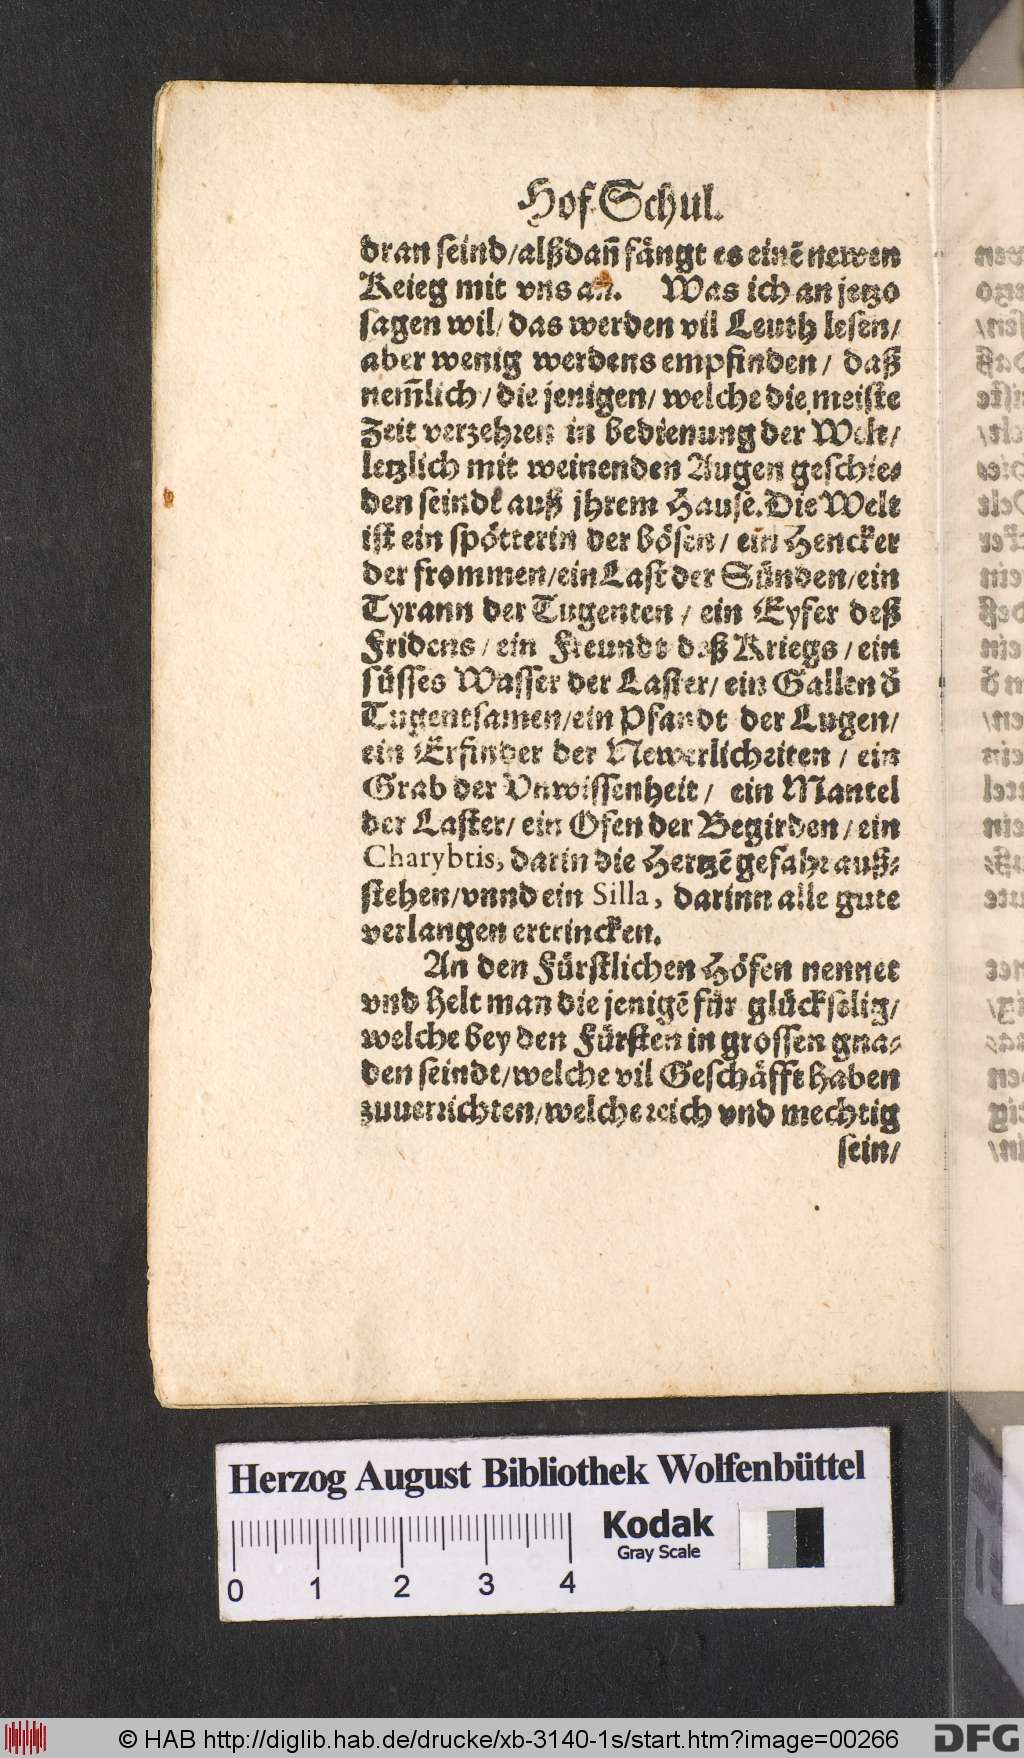 Hof Schul.
dran seind/alßdañ fängt es einē newen
Keieg mit vns an. Was ich an jetzo
sagen wil/ das werden vil Leuth lesen/
aber wenig werdens empfinden/ daß
nem̃lich/ die jenigen/ welche die meiste
Zeit verzehren in bedienung der Welt/
letzlich mit weinenden Augen geschie-
den seindt auß jhrem Hause. Die Welt
ist ein spötterin der bösen/ ein Hencker
der frommen/ein Last der Sünden/ein
Tyrann der Tugenten/ ein Eyfer deß
Fridens/ein Freundt deß Kriegs/ein
süsses Wasser der Laster/ein Gallen d̕
Tugentsamen/ein Pfandt der Lugen/
ein Erfinder der Newerlicheiten/ ein
Grab der Vnwissenheit/ ein Mantel
der Laster/ ein Ofen der Begirden/ein
Charybtis, darin die Hertzē gefahr auß-
stehen/vnnd ein Silla, darinn alle gute
verlangen ertrincken.
An den Fürstlichen Höfen nennet
vnd helt man die jenigē für glückselig/
welche bey den Fürsten in grossen gna-
den seindt/welche vil Geschäfft haben
zuuerrichten/welche reich vnd mechtig
sein/
Herzog August Bibliothek Wolfenbüttel
Kodak
Gray Scale
0 1 2 3 4
© HAB http://diglib.hab.de/drucke/xb-3140-1s/start.htm?image=00266
DFG